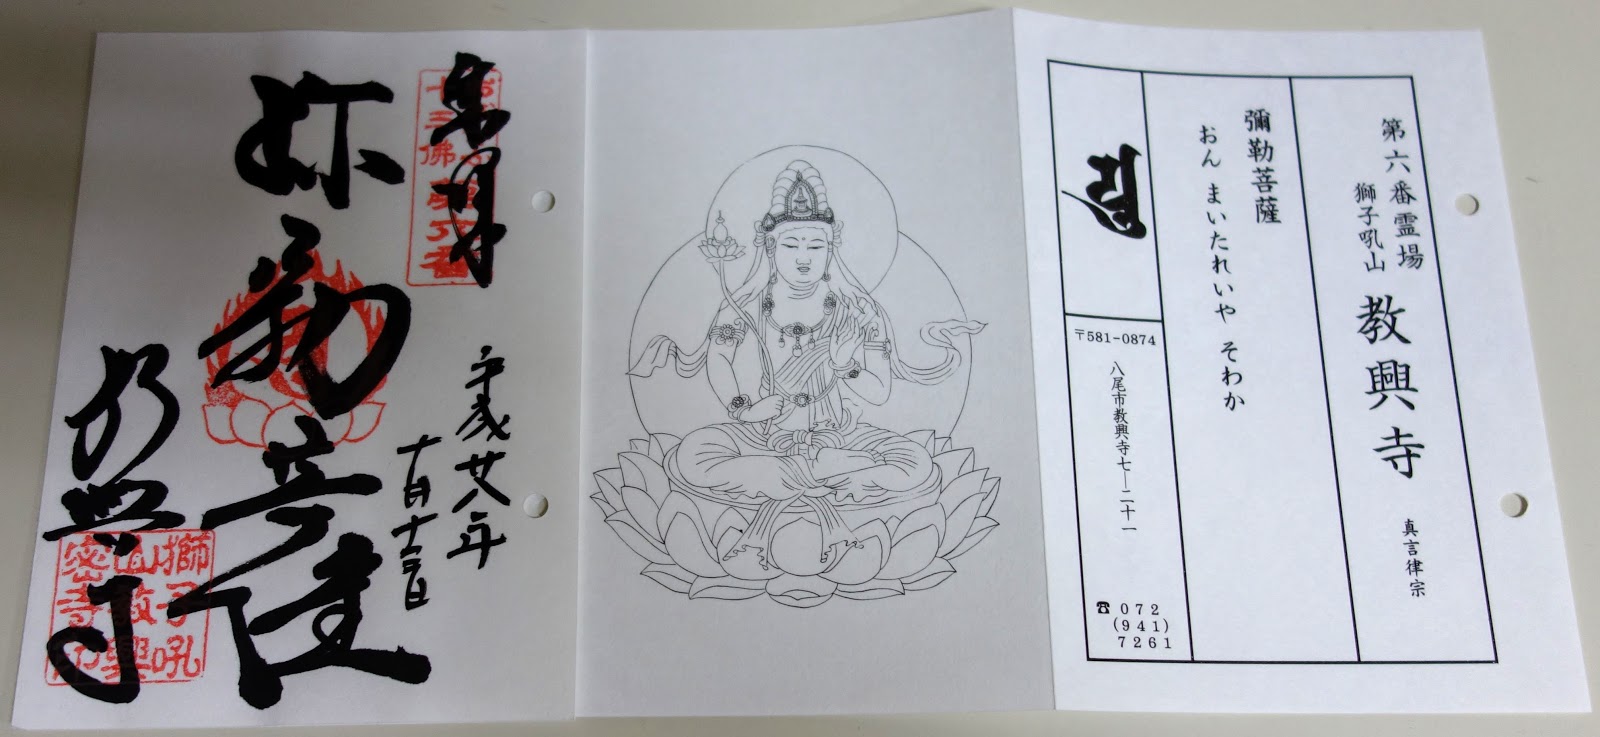 第六番霊場
獅子吼山 教興寺 真言律宗
彌勒菩薩
おん まいたれいや そわか
〒581-0874
八尾市教興寺七―二十一
☎072
(941)
7261
奉拝
十三佛
平成廿八年
十月十三日
弥勒菩薩
教興寺
獅子吼
山教興
密寺印